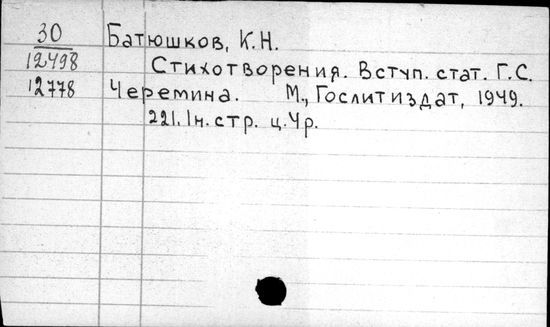 30 Батюшков, К.Н.
12498 Стихотворения. Вступ. стат. Г.С.
12778 Черемина. М., Гослитиздат, 1949.
221. 1н. стр. ц. 4р.